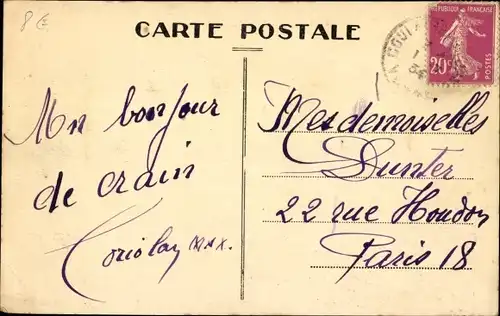 8€
CARTE POSTALE
REPUBLIQUE FRANÇAISE
20c
POSTES
Mn bonjour
de crain
Mesdemoiselles
Dunter
22 rue Houdon
Paris 18